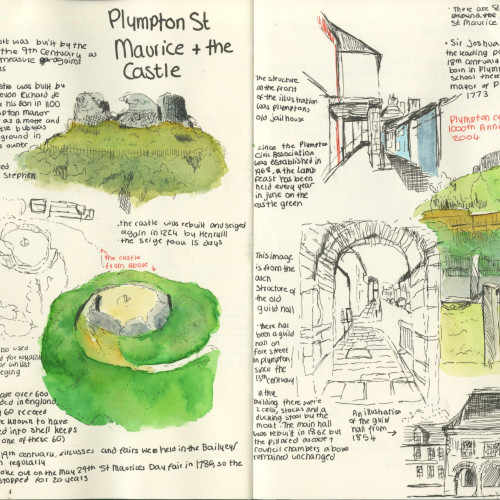 Plympton St
Maurice + the
Castle
was built by the
the 9th Centuary as
measure against
was built by
Richard de
his son in 1100
manor
as a motte and
ground in
owner
Stephen
.the castle was rebuilt and seiged
again in 1224 by Henry III
the seige took 15 days
the castle
from above
also used
are over 600
in England
60 record
known to have
into shell keeps
one of these 60)
19th centuary, circusses and fairs were held in the Bailyey/
regularly
out on the May 29th St Maurices Day fair in 1786, so the
stopped for 20 years
The structure
at the front
of the illustration
was plymptons
old Jailhouse
since the Plympton
Civic Association
was established in
1968, a the lamb
feast has been
held every year
in june on the
castle green
This image
is from the
arch
structure of
the old
guild hall
there has
been a guild
hall on
fore street
in plympton
since the
13th centenary
in the
building there were
2 cells, stocks and a
ducking stool by the
moat. The main hall
was rebuilt in 1862 but
the pillared arcade +
council chambers above
remained unchanged
An illustration
of the guild
hall from →
1854
• There are 8
around the
St Maurice
• Sir Joshua
the leading
18th centuary
born in Plym
school there
mayor of P
1773
Plympton ce
1000th Anni
2004